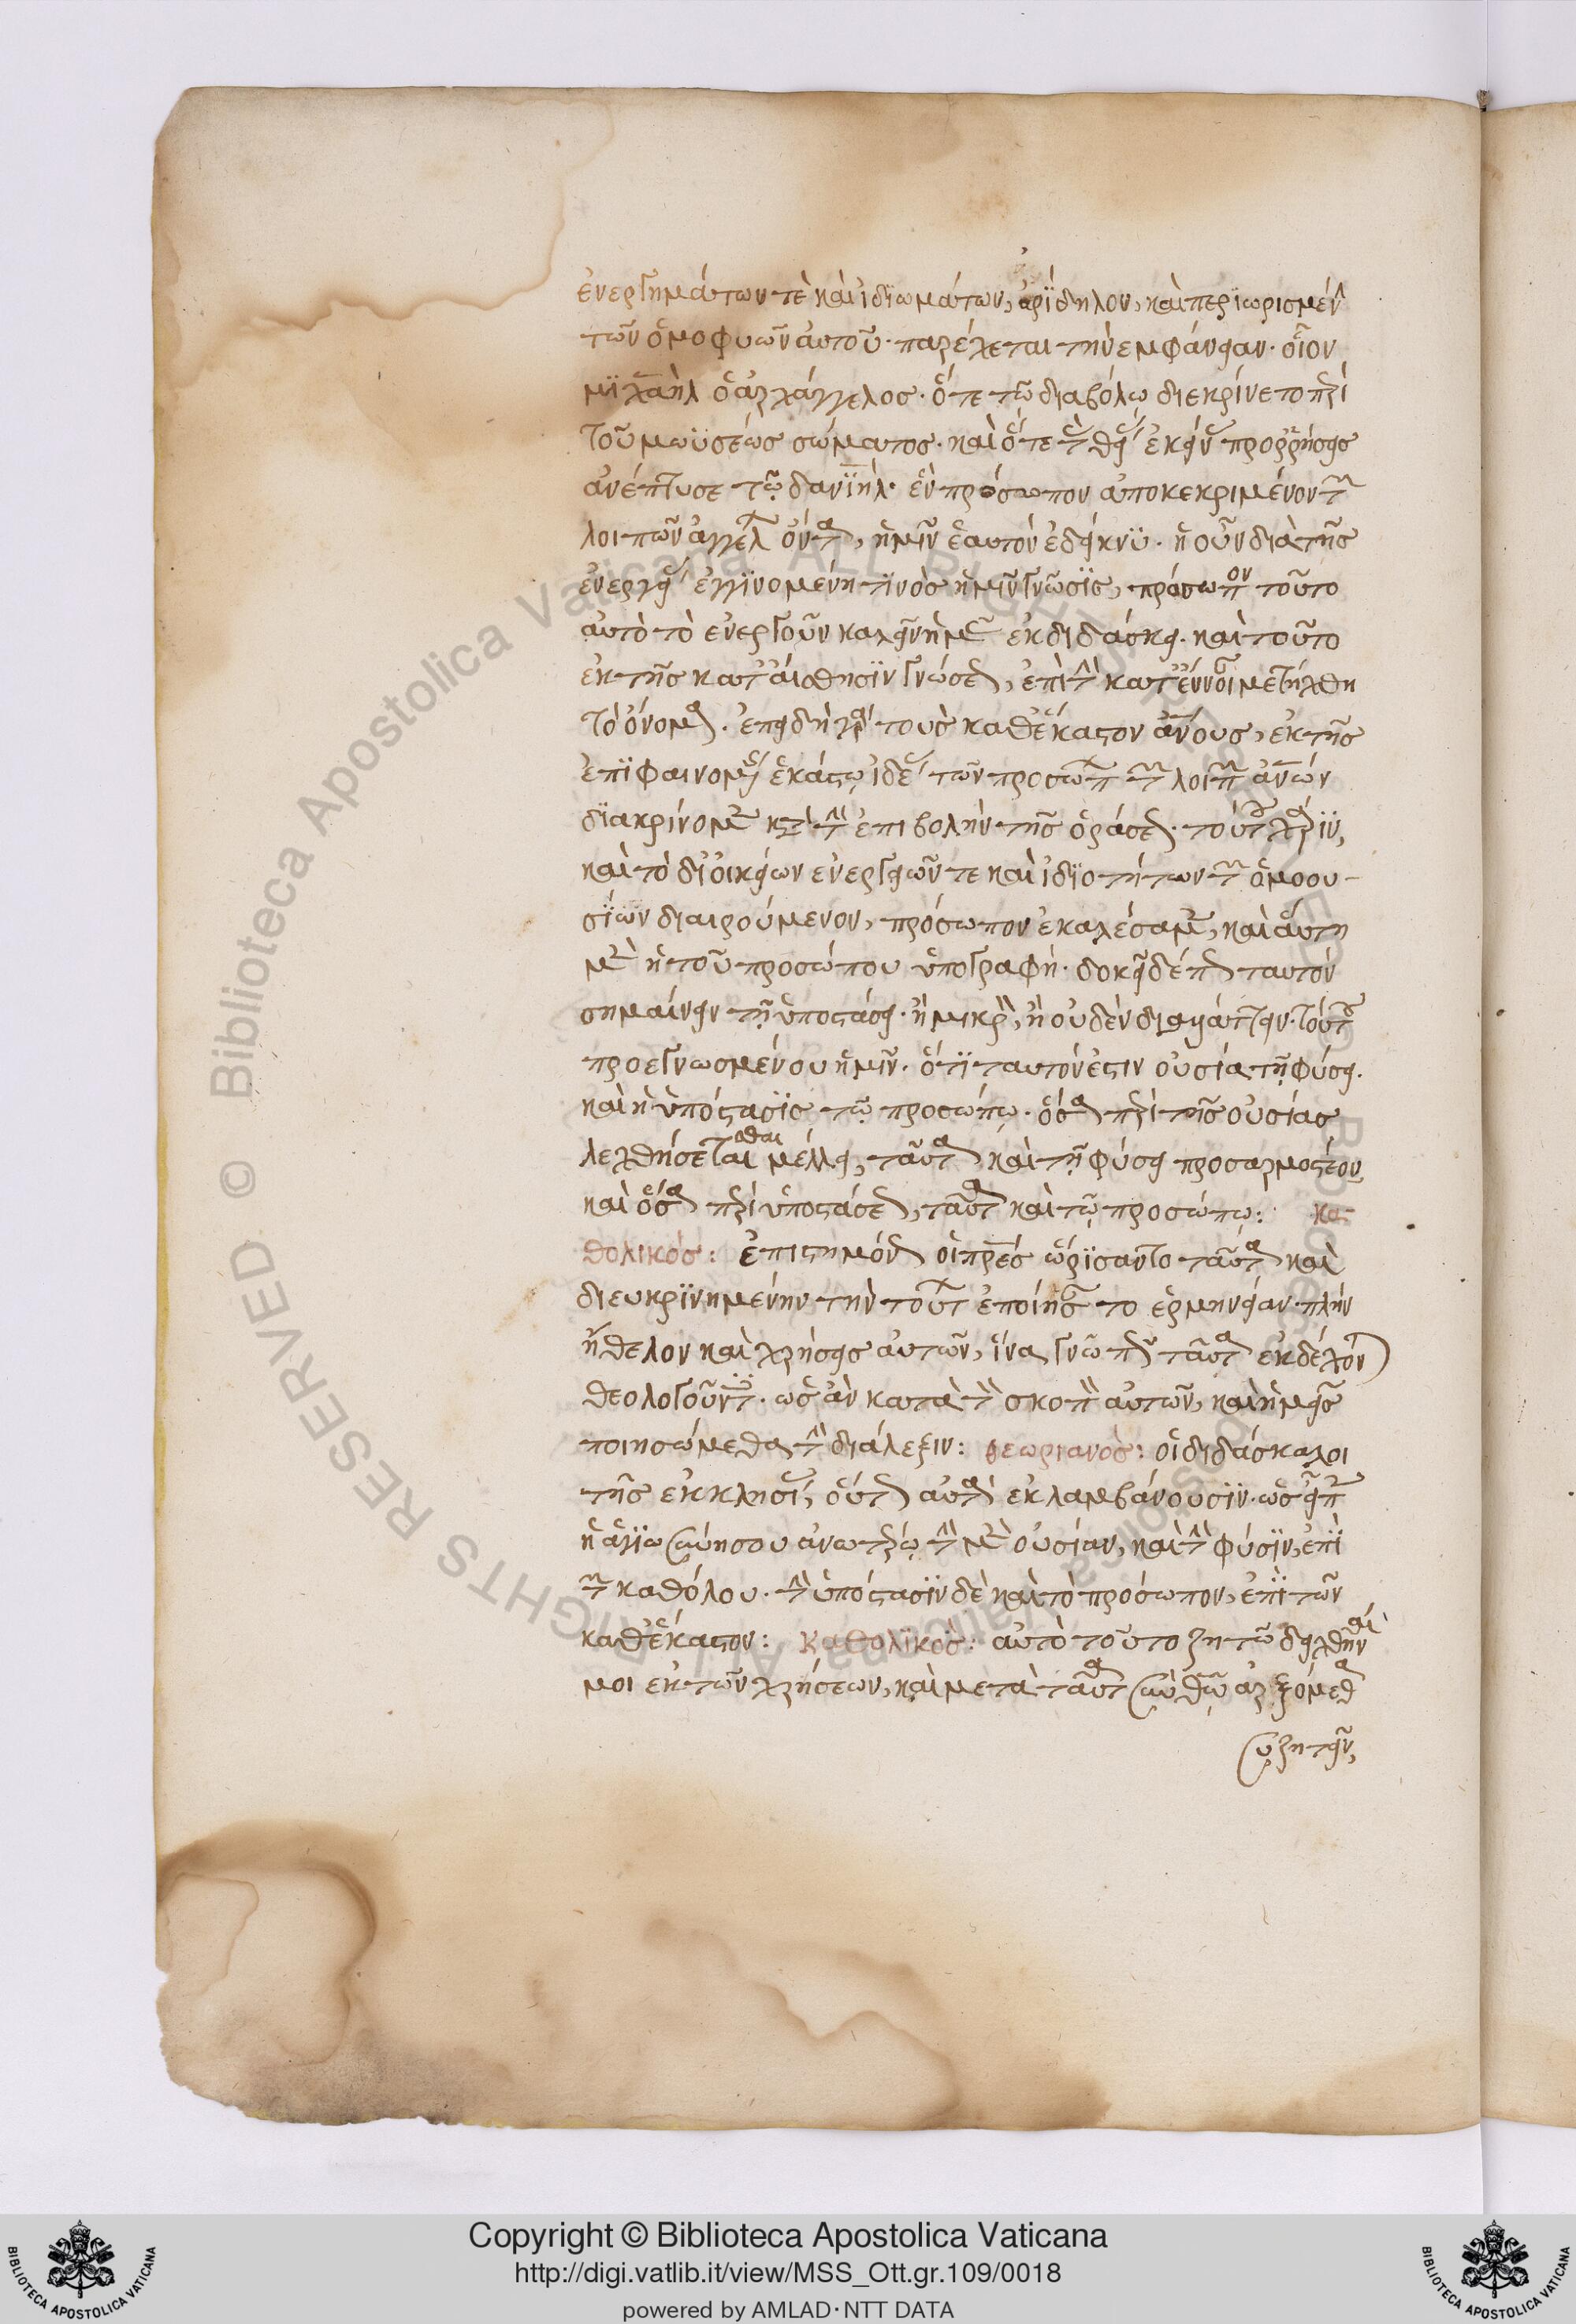 ἐνεργημάτων τὲ καὶ ἰδϊωμάτων, ἀρΐδηλον, καὶ περϊωρισμέν
τῶν ὁμοφυῶν αὐτοῦ· παρέχεται τὴν ἐμφάνειαν· οἷον
μϊχαὴλ ὁ ἀρχάγγελος· ὅτε τῶ διαβόλω διεκρίνετο περὶ
τοῦ μωϋσέως σώματος· καὶ ὅτε τὰς θείας ἐκείνας προρρήσεις
ἀνέπτυσε τῶ δανϊὴλ· ἓν πρόσωπον ἀποκεκριμένον τῶν
λοιπῶν ἀγγέλων ὄντα, ἡμῖν ἑαυτὸν ἐδείκνϋ· ἡ οὖν διὰ τῆς
ἐνεργείας ἐγγϊνομένη τινὸς ἡμῖν γνῶσϊς, πρόσωπον τοῦτο
αὐτὸ τὸ ἐνεργοῦν καλεῖν ἡμᾶς ἐκδιδάσκει· καὶ τοῦτο
ἐκ τῆς κατ' αἴσθησϊν γνώσεως, ἐπὶ τὴν κατ' ἔννοιαν μετήχθη
τὸ ὄνομα· ἐπειδὴ γὰρ τοὺς καθ' ἕκαστον ἀνους, ἐκ τῆς
ἐπϊφαινομένης ἑκάστω ἰδέας τῶν προσώπων τῶν λοιπῶν ἀνων
δϊακρίνομεν κατὰ τὴν ἐπιβολὴν τῆς ὁράσεως· τούτου χάρϊν,
καὶ τὸ δι' οἰκείων ἐνεργειῶν τε καὶ ἰδϊοτήτων τῶν ὁμοου-
σΐων διαιρούμενον, πρόσωπον ἐκαλέσαμεν, καὶ αὕτη
μὲν ἡ τοῦ προσώπου ὑπογραφή· δοκεῖ δέ πως ταυτὸν
σημαίνειν τῆ ὑποστάσει· ἢ μικρὸν, ἢ οὐδὲν διαλάττειν· τούτου
προεγνωσμένου ἡμῖν· ὅτϊ ταυτόν ἐστιν οὐσία τῆ φύσει·
καὶ ἡ ὑπόστασϊς τῶ προσώπω· ὅσα περὶ τῆς οὐσίας
λεχθήσεσθαι μέλλει, ταῦτα καὶ τῆ φύσει προσαρμοστέον
καὶ ὅσα περὶ ὑποστάσεως, ταῦτα καὶ τῶ προσώπω: κα
θολικός: ἐπιστημόνως οἱ πρες ὡρίσαντο ταῦτα καὶ
διευκρϊνημένην τὴν τούτων ἐποίησαν το ἑρμηνείαν· πλὴν
ἤθελον καὶ χρήσεις αὐτῶν, ἵνα γνῶ πῶς ταῦτα ἐκδέχον
θεολογοῦντες· ὡς ἂν κατὰ τὸν σκοπὸν αὐτῶν, καὶ ἡμεῖς
ποιησώμεθα τὴν διάλεξιν: θεωριανὸς: οἱ διδάσκαλοι
τῆς ἐκκλησίας, οὕτως αὐτὰ ἐκλαμβάνουσϊν· ὡς εἶπεν
ἡ ἁγϊωσύνη σου ἀνωτέρω τὴν μὲν οὐσίαν, καὶ τὴν φύσϊν, ἐπῒ
τῶν καθόλου· τὴν ὑπόστασϊν δὲ καὶ τὸ πρόσωπον, ἐπῒ τῶν
καθ' ἕκαστον: Καθολϊκὸς: αὐτὸ τοῦτο ζητῶ δειχθῆναί
μοι ἐκ τῶν χρήσεων, καὶ μετὰ ταῦτα σὺν θῶ ἀρξόμεθα
συζητεῖν,
Copyright © Biblioteca Apostolica Vaticana
http://digi.vatlib.it/view/MSS_Ott.gr.109/0018
powered by AMLAD·NTT DATA